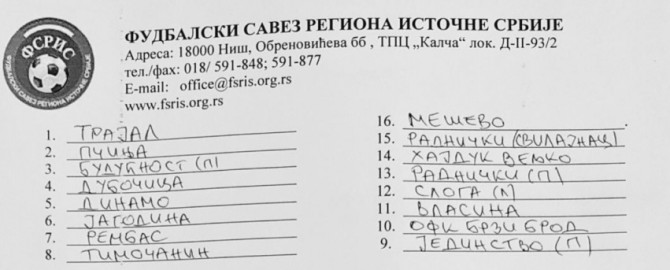 ФСРИС
ФУДБАЛСКИ САВЕЗ РЕГИОНА ИСТОЧНЕ СРБИЈЕ
ФУДБАЛСКИ САВЕЗ РЕГИОНА ИСТОЧНЕ СРБИЈЕ
Адреса: 18000 Ниш, Обреновићева бб , ТПЦ „Калча“ лок. Д-II-93/2
тел./фах: 018/ 591-848; 591-877
E-mail: office@fsris.org.rs
www.fsris.org.rs
1. ТРАЈАЛ
2. ПЧИЦА
3. БУДУЋНОСТ (П)
4. ДУБОЧИЦА
5. ДИНАМО
6. ЈАГОДИНА
7. РЕМБАС
8. ТИМОЧАНИН
16. МЕШЕВО
15. РАДНИЧКИ (СВИЛАЈНАЦ)
14. ХАЈДУК ВЕЉКО
13. РАДНИЧКИ (П)
12. СЛОГА (Л)
11. ВЛАСИНА
10. ОФК БРЗИ БРОД
9. ЈЕДИНСТВО (П)